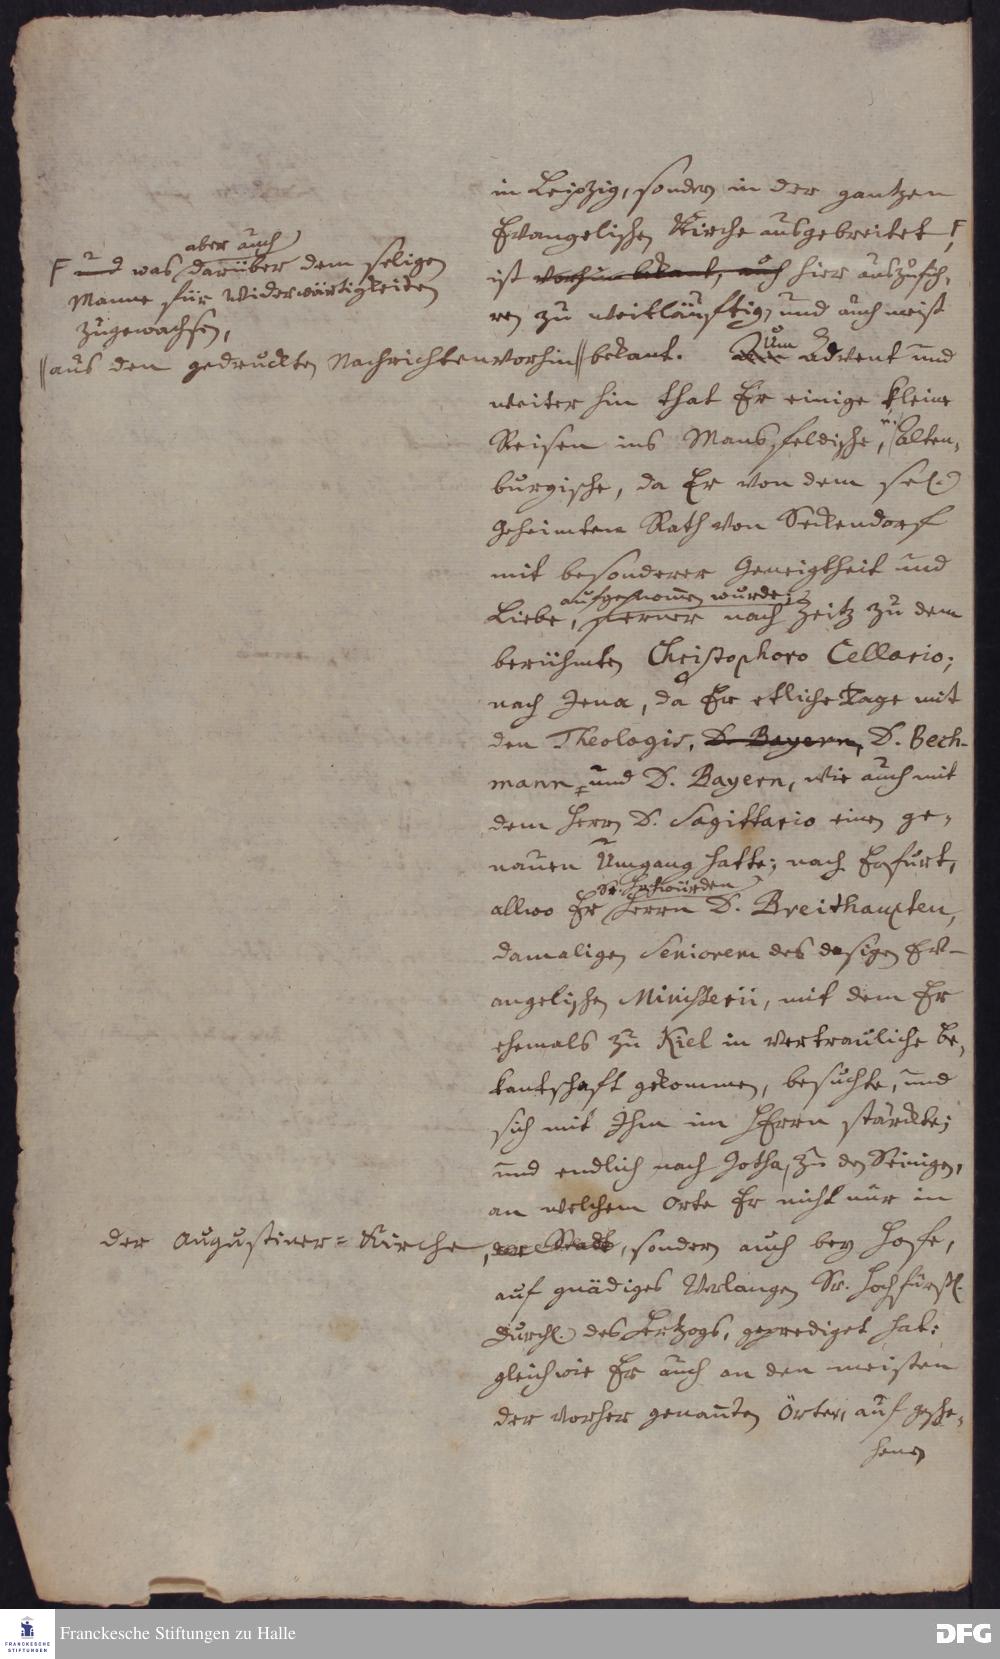 in Leipzig, sondern in der gantzen
Evangelischen Kirche ausgebreitet F,
aber auch
F und was darüber dem seligen
Manne für Widerwärtigkeiten
zugewachsen,
ist vorhin bekant, auch hier auszufüh-
ren zu weitläuftig, und auch meist
|| aus den gedruckten Nachrichten vorhin || bekant. Um Advent und
weiter hin that Er einige kleine
Reisen ins Mansfeldische, u. Alten-
burgische, da Er von dem sel.
Geheimten Rath von Seckendorf
mit besonderer Geneigtheit und
aufgenommen wurde;
Liebe, ferner nach Zeitz zu dem
berühmten Christophoro Cellario;
nach Jena, da Er etliche Tage mit
den Theologis, D. Bayern, D. Bech-
mann und D. Bayern, wie auch mit
dem Herrn D. Sagittario einen ge-
nauen Umgang hatte; nach Erfurt,
Sr. Hochwürden
allwo Er Herrn D. Breithaupten,
damaligen Seniorem des dasigen Ev-
angelischen Ministerii, mit dem Er
ehemals zu Kiel in vertrauliche Be-
kantschaft gekommen, besuchte, und
sich mit Ihm im HErrn stärckte;
und endlich nach Gotha, zu den Seinigen,
an welchem Orte Er nicht nur in
der Augustiner=Kirche, der Stadt, sondern auch bey Hofe,
auf gnädiges Verlangen Sr. Hochfürstl.
Durchl. des Hertzogs, geprediget hat:
gleichwie Er auch an den meisten
der vorher genanten Örter, auf gesche-
henes
Franckesche Stiftungen zu Halle
FRANCKESCHE
STIFTUNGEN
DFG